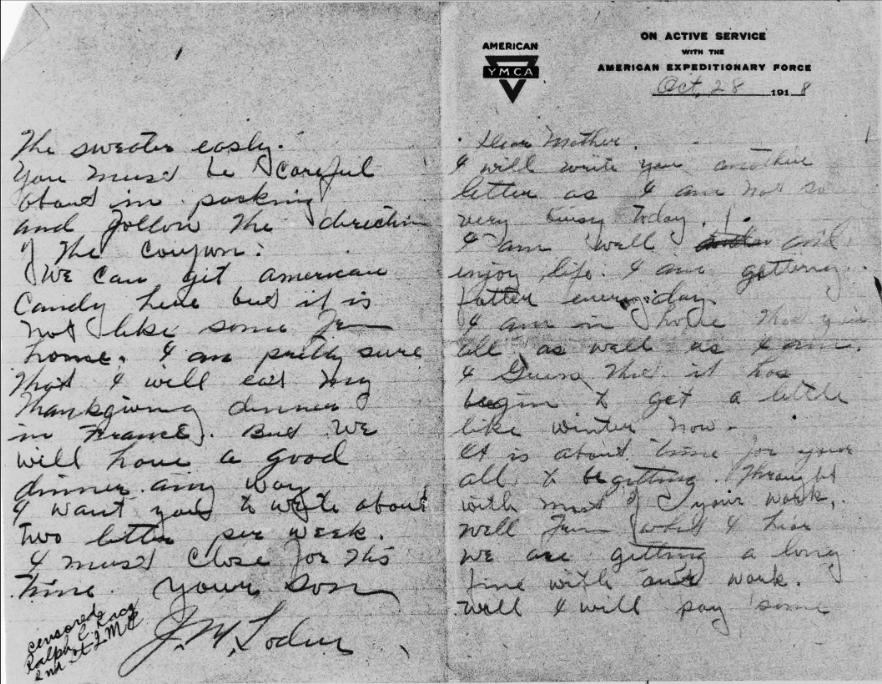 AMERICAN
YMCA
ON ACTIVE SERVICE
WITH THE
AMERICAN EXPEDITIONARY FORCE
Oct, 28 1918
Dear Mother.
I will write you another
letter as I am not so
very busy today.
I am well and
enjoy life. I am getting
fatter every day
I am in hope that you
all as well as I am.
I Guess that it has
begin to get a little
like winter now.
It is about time for you
all to be getting throught
with most of your work.
Well from what I hear
we are getting a long
fine with our work.
Will I will say some
The sweater easly.
You must be careful
about in packing
and follow the direction
of the coupon:
We can get american
Candy here but it is
not like some from
home. I am pretty sure
that I will eat my
thanksgiving dinner
in France. But we
will have a good
dinner any way
I want you to write about
two letter per week.
I must close for this
time. your son
J. M.
censored
Ralph C.
2nd Lt